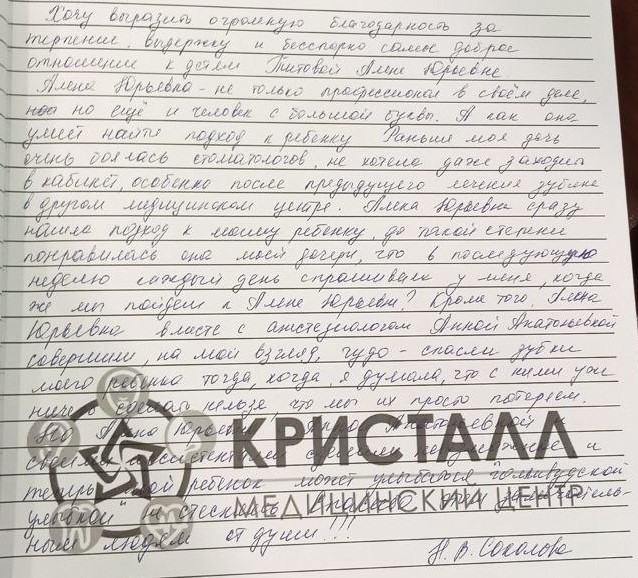 Хочу выразить огромную благодарность за
терпение, выдержку и бесспорно самое доброе
отношение к детям Титовой Алене Юрьевне
Алена Юрьевна - не только профессионал в своём деле,
но ещё и человек с большой буквы. А как она
умеет найти подход к ребенку Раньше моя дочь
очень боялась стоматологов, не хотела даже заходить
в кабинет, особенно после предыдущего лечения зубика
в другом медицинском центре. Алена Юрьевна сразу
нашла подход к моему ребенку, до такой степени
понравилась она моей дочери, что в последующую
неделю каждый день спрашивала у меня, когда
же мы пойдем к Алене Юрьевне? Кроме того, Алена
Юрьевна вместе с анестезиологом Анной Анатольевной
совершили, на мой взгляд, чудо - спасли зубки
моего ребенка тогда, когда, я думала, что с ними уже
ничего сделать нельзя, что мы их просто потеряем.
Но Алена Юрьевна Анатольевной и
своими ассистентами сделали невозможное и
теперь мой ребенок может улыбаться "голливудской
улыбкой" не стесняясь. Спасибо этим замечатель-
ным людям от души!!!
Н. В. Соколова
КРИСТАЛЛ
МЕДИЦИНСКИЙ ЦЕНТР